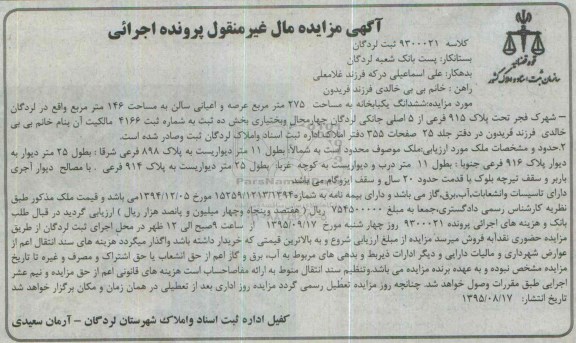 آگهی مزایده مال غیرمنقول پرونده اجرائی
قوه قضائیه
سازمان ثبت اسناد و املاک کشور
کلاسه ۹۳۰۰۰۲۱ ثبت لردگان
بستانکار: پست بانک شعبه لردگان
بدهکار: علی اسماعیلی درکه فرزند غلامعلی
راهن : خانم بی بی خالدی فرزند فریدون
مورد مزایده:ششدانگ یکبابخانه به مساحت ۲۷۵ متر مربع عرصه و اعیانی سالن به مساحت ۱۴۶ متر مربع واقع در لردگان
– شهرک فجر تحت پلاک ۹۱۵ فرعی از ۵ اصلی جانکی لردگان چهارمحال وبختیاری بخش ده ثبت به شماره ثبت ۴۱۶۶ مالکیت آن بنام خانم بی بی
خالدی فرزند فریدون در دفتر جلد ۲۵ صفحات ۳۵۵ دفتر املاک اداره ثبت اسناد واملاک لردگان ثبت وصادر شده است.
۲.حدود و مشخصات ملک مورد ارزیابی:ملک موصوف محدود است به شمالا: بطول ۱۱ متر دیواریست به پلاک ۸۹۸ فرعی شرقا : بطول ۲۵ متر دیوار به
دیوار پلاک ۹۱۶ فرعی جنوبا : بطول ۱۱ متر درب و دیواریست به کوچه غربا: بطول ۲۵ متر دیواریست به پلاک ۹۱۴ فرعی . با مصالح دیوار آجری
باربر و سقف تیرچه بلوک با قدمت حدود ۲۰ سال و سقف ایزوگام می باشد
دارای تاسیسات وانشعابات،آب،برق،گاز می باشد و دارای بیمه نامه به شماره۱۵۲۵۹/۱۲۱۳/۱۳۹۴ مورخ ۱۳۹۴/۱۲/۰۵می باشد و قیمت ملک مذکور طبق
نظریه کارشناس رسمی دادگستری،جمعا به مبلغ ۷۵۴۵۰۰۰۰۰ ریال ( هفتصد وپنجاه وچهار میلیون و پانصد هزار ریال ) ارزیابی گردید در قبال طلب
بانک و هزینه های اجرائی پرونده ۹۳۰۰۰۲۱ روز چهار شنبه مورخ ۱۳۹۵/۰۹/۱۷ از ساعت ۹صبح الی ۱۲ ظهر در محل اجرای ثبت لردگان از طریق
مزایده حضوری نقدآبه فروش میرسد مزایده از مبلغ ارزیابی شروع و به بالاترین قیمتی که خریدار داشته باشد واگذار میگردد هزینه های سند انتقال اعم از
عوارض شهرداری و مالیات دارایی و دیگر ادارات ذیربط و بدهی های مربوط به آب، برق و گاز اعم از حق انشعاب یا حق اشتراک و مصرف و غیره تا تاریخ
مزایده مشخص نبوده و به عهده برنده مزایده می باشد.وتنظیم سند انتقال منوط به ارائه مفاصاحساب است هزینه های قانونی اعم از حق مزایده و نیم عشر
اجرایی طبق مقررات وصول خواهد شد. چنانچه روز مزایده تعطیل رسمی گردد مزایده روز اداری بعد از تعطیلی در همان زمان و مکان برگزار خواهد شد
تاریخ انتشار: ۱۳۹۵/۰۸/۱۷
کفیل اداره ثبت اسناد واملاک شهرستان لردگان – آرمان سعیدی